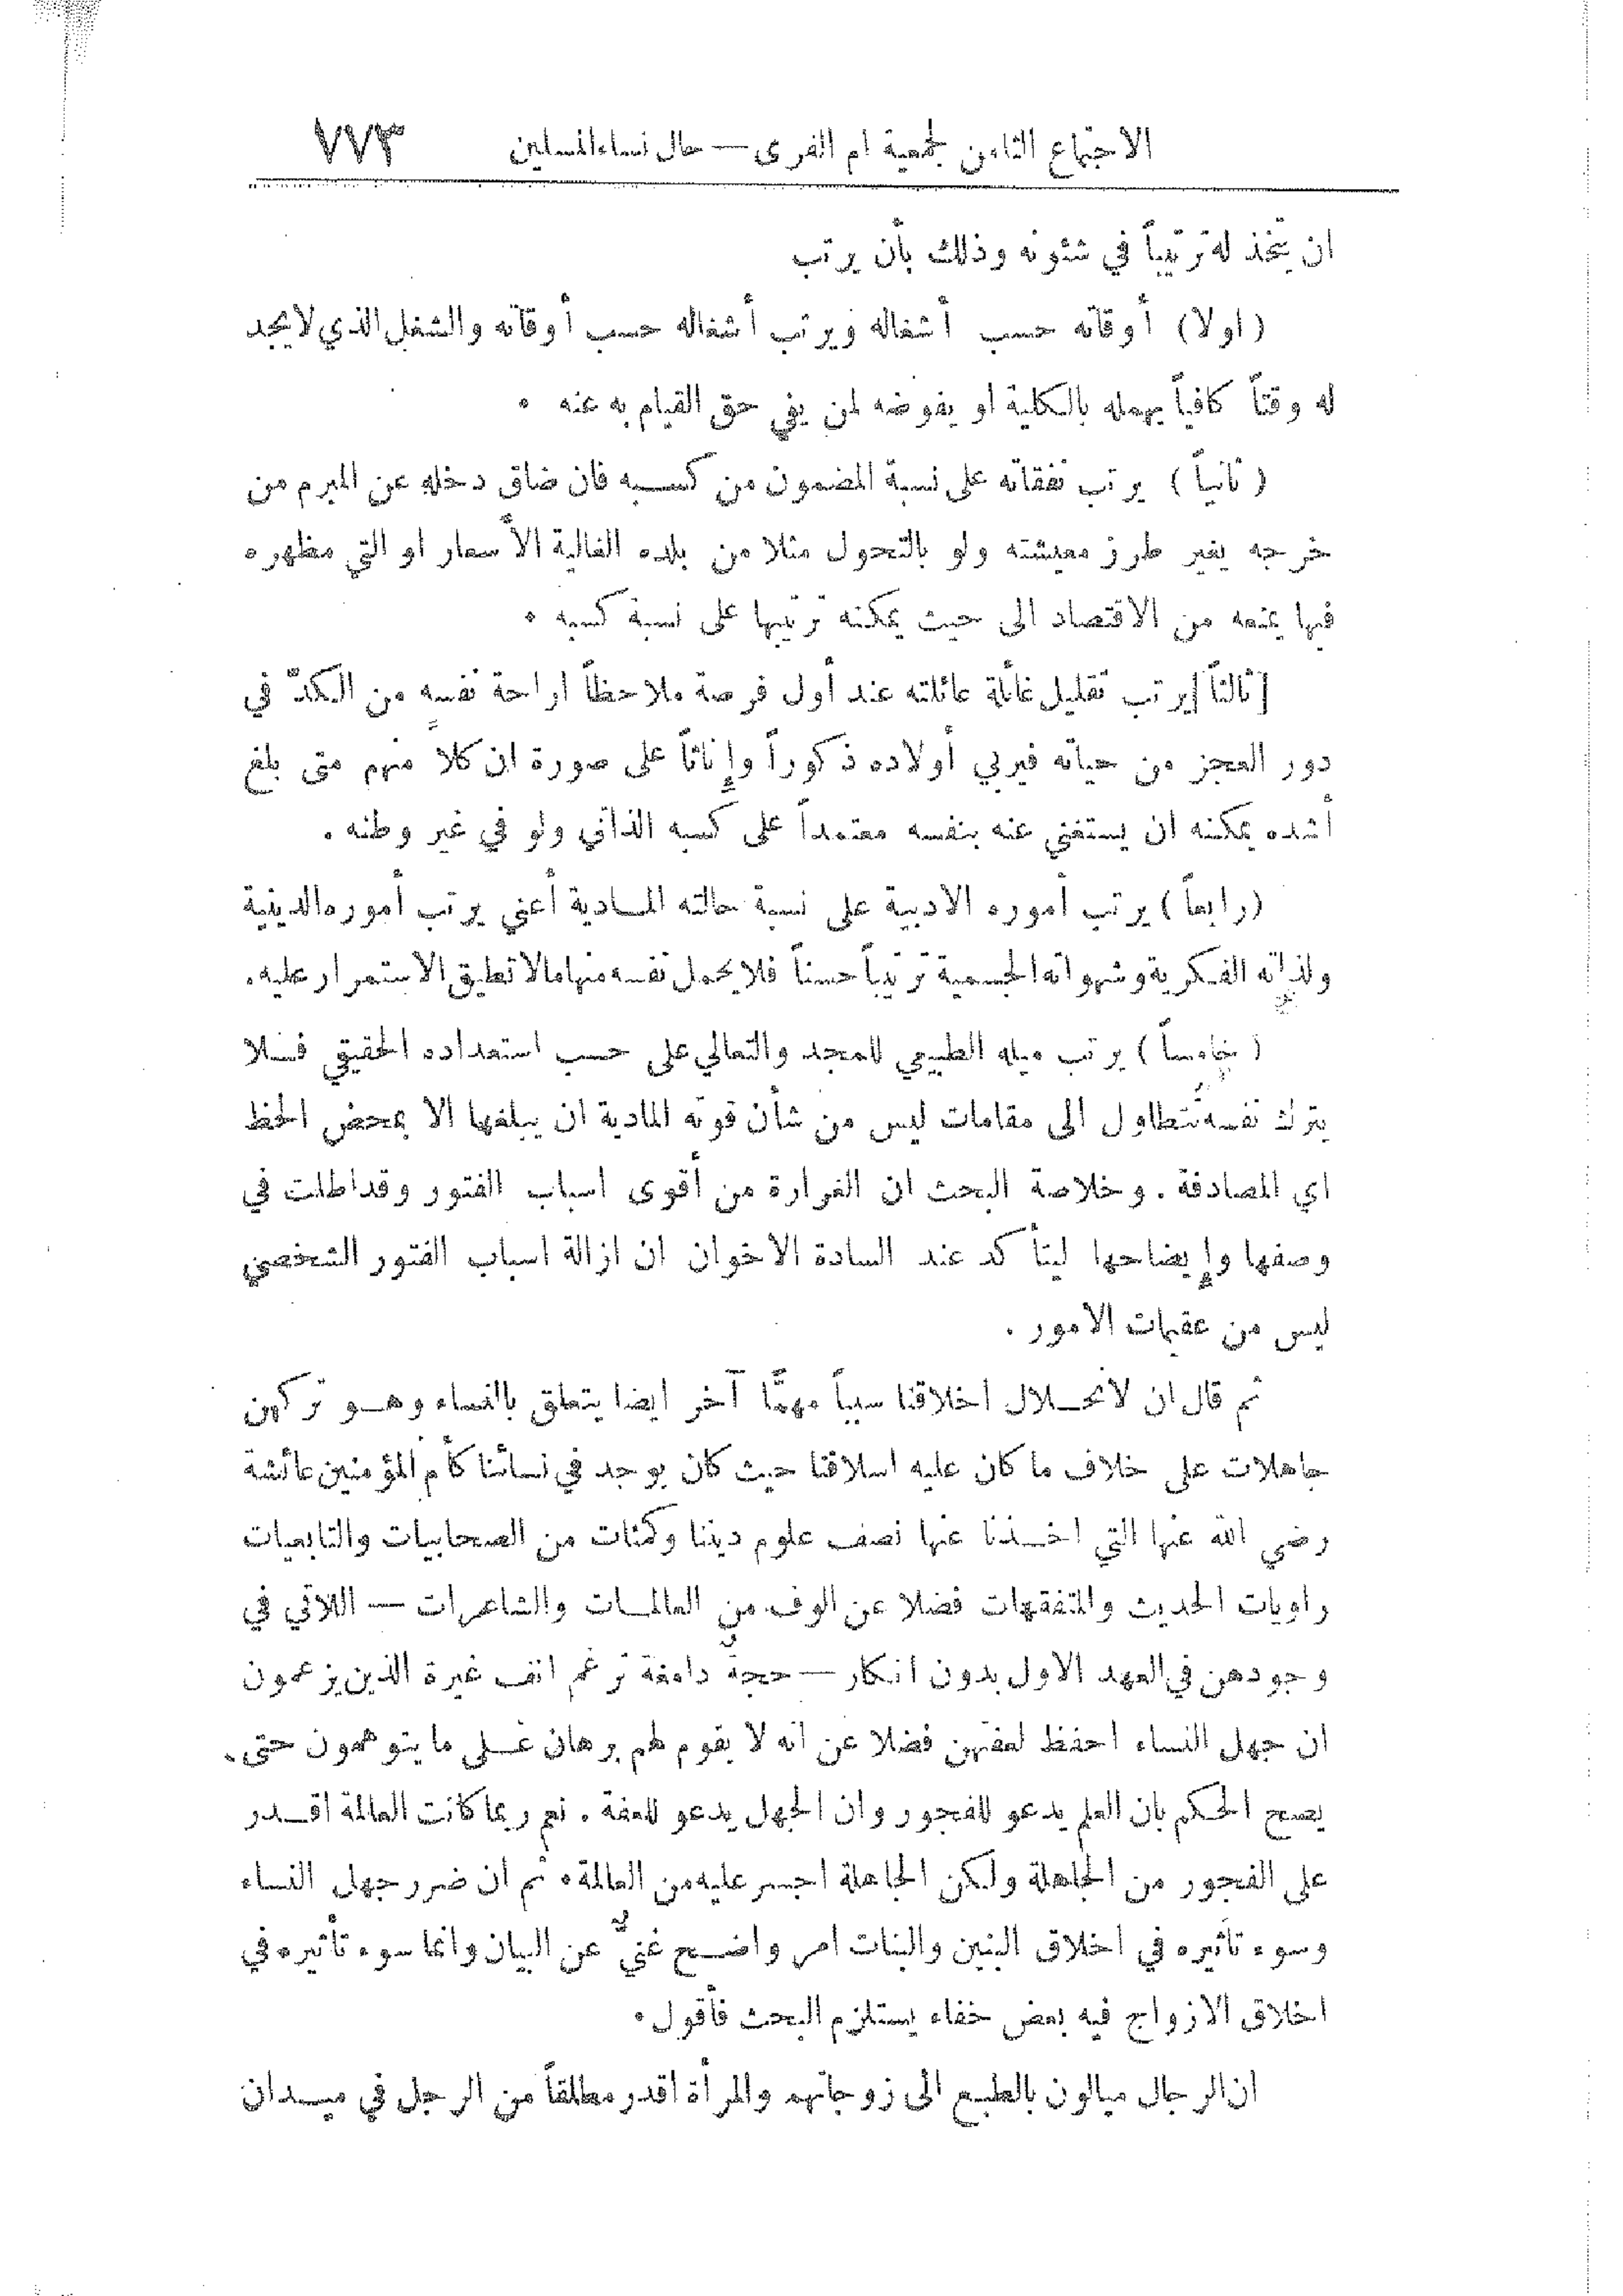 الاجتماع الثامن لجمعية ام القرى — حال نساء المسلمين ٧٧٣
ان يتخذ له ترتيباً في شئونه وذلك بأن يرتب
(اولا) أوقاته حسب أشغاله ويرتب أشغاله حسب أوقاته والشغل الذي لا يجد
له وقتاً كافياً يهمله بالكلية او يفوضه لمن يفي حق القيام به عنه .
(ثانياً) يرتب نفقاته على نسبة المضمون من كسبه فان ضاق دخله عن المبرم من
خرجه يغير طرز معيشته ولو بالتحول مثلا من بلده الغالية الأسعار او التي مظهره
فيها يمنعه من الاقتصاد الى حيث يمكنه ترتيبها على نسبة كسبه .
[ثالثاً] يرتب تقليل غائلة عائلته عند أول فرصة ملاحظاً اراحة نفسه من الكدّ في
دور العجز من حياته فيربي أولاده ذكوراً وإناثاً على صورة ان كلاًّ منهم متى بلغ
أشده يمكنه ان يستغني عنه بنفسه معتمداً على كسبه الذاتي ولو في غير وطنه .
(رابعاً) يرتب أموره الادبية على نسبة حالته المادية أعني يرتب أموره الدينية
ولذاته الفكرية وشهواته الجسمية ترتيباً حسناً فلا يحمل نفسه منها مالا تطيق الاستمرار عليه.
(خامساً) يرتب ميله الطبيعي للمجد والتعالي على حسب استعداده الحقيقي فلا
يترك نفسه تتطاول الى مقامات ليس من شأن قوته المادية ان يبلغها الا بمحض الحظ
اي المصادفة . وخلاصة البحث ان الغرارة من أقوى اسباب الفتور وقد اطلت في
وصفها وإيضاحها ليتأكد عند السادة الاخوان ان ازالة اسباب الفتور الشخصي
ليس من عقيمات الامور .
ثم قال ان لانحلال اخلاقنا سبباً مهمًّا آخر ايضا يتعلق بالنساء وهو تركهن
جاهلات على خلاف ما كان عليه اسلافنا حيث كان يوجد في نسائنا كأم المؤمنين عائشة
رضي الله عنها التي اخذنا عنها نصف علوم ديننا وكمئات من الصحابيات والتابعيات
راويات الحديث والمتفقهات فضلا عن الوف من العالمات والشاعرات — اللاتي في
وجودهن في العهد الاول بدون انكار — حجة دامغة ترغم انف غيرة الذين يزعمون
ان جهل النساء احفظ لعفتهن فضلا عن انه لا يقوم لهم برهان على ما يتوهمون حتى
يصح الحكم بان العلم يدعو للفجور وان الجهل يدعو للعفة . نعم ربما كانت العالمة اقدر
على الفجور من الجاهلة ولكن الجاهلة اجسر عليه من العالمة . ثم ان ضرر جهل النساء
وسوء تأثيره في اخلاق البنين والبنات امر واضح غنيٌّ عن البيان وانما سوء تأثيره في
اخلاق الازواج فيه بعض خفاء يستلزم البحث فأقول .
ان الرجال ميالون بالطبع الى زوجاتهم والمرأة اقدر مطلقاً من الرجل في ميدان